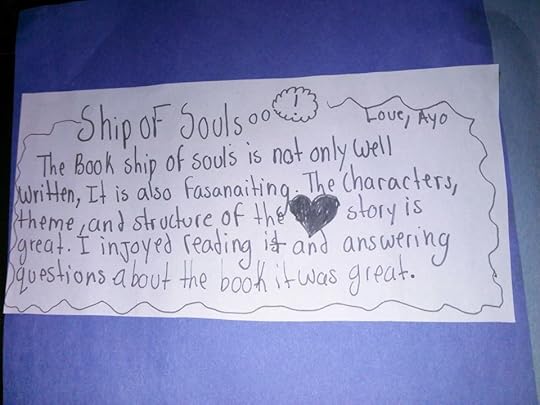 Ship oF Souls 1
Love, Ayo
The Book ship of souls is not only well
written, It is also fasanaiting. The Characters,
theme, and structure of the story is
great. I injoyed reading it and answering
questions about the book it was great.